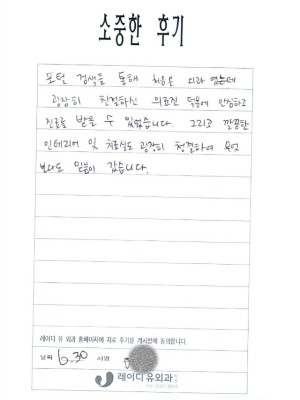 소중한 후기
포털 검색을 통해 처음온 외과 였는데
굉장히 친절하신 의료진 덕분에 안심하고
진료를 받을 수 있었습니다. 그리고 깔끔한
인테리어 및 치료실도 굉장히 청결하여 무엇
보다도 믿음이 갔습니다.
레이디 유 외과 홈페이지에 치료 후기를 게시함에 동의합니다.
날짜 6.30 서명
레이디유외과